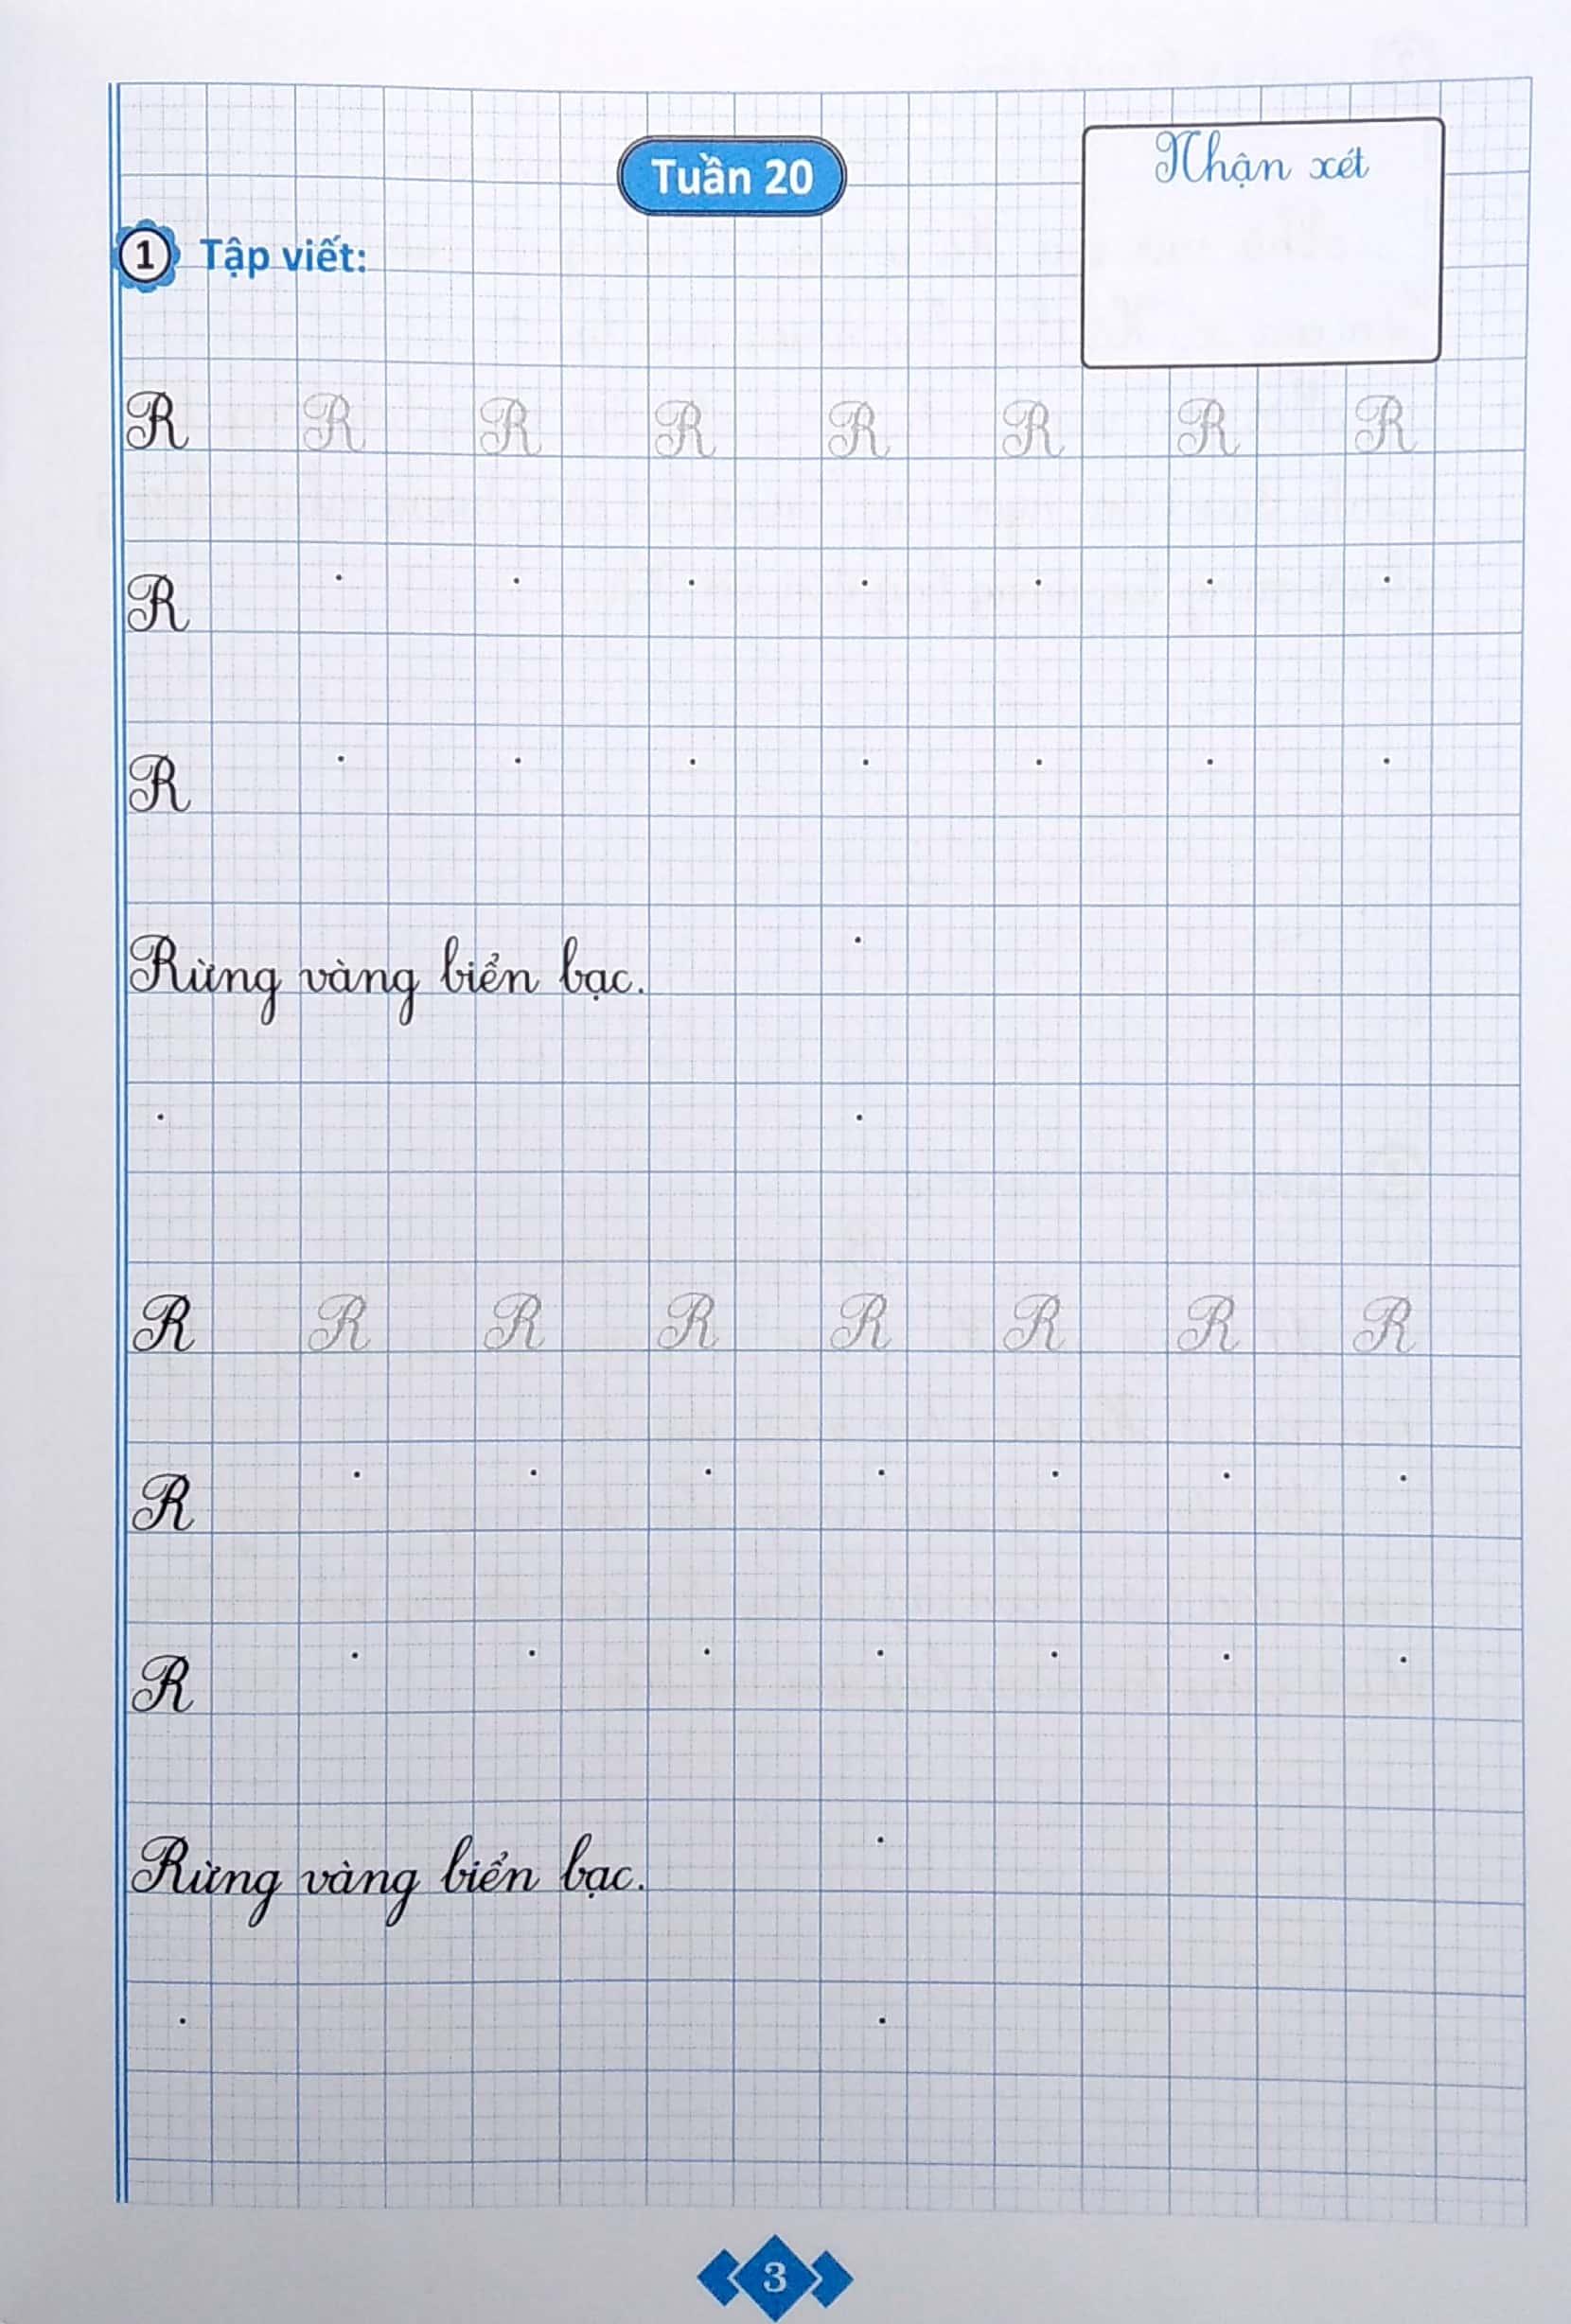 Tuần 20
Nhận xét
1 Tập viết:
R R R R R R R R
R
R
Rừng vàng biển bạc.
R R R R R R R R
R
R
Rừng vàng biển bạc.
3